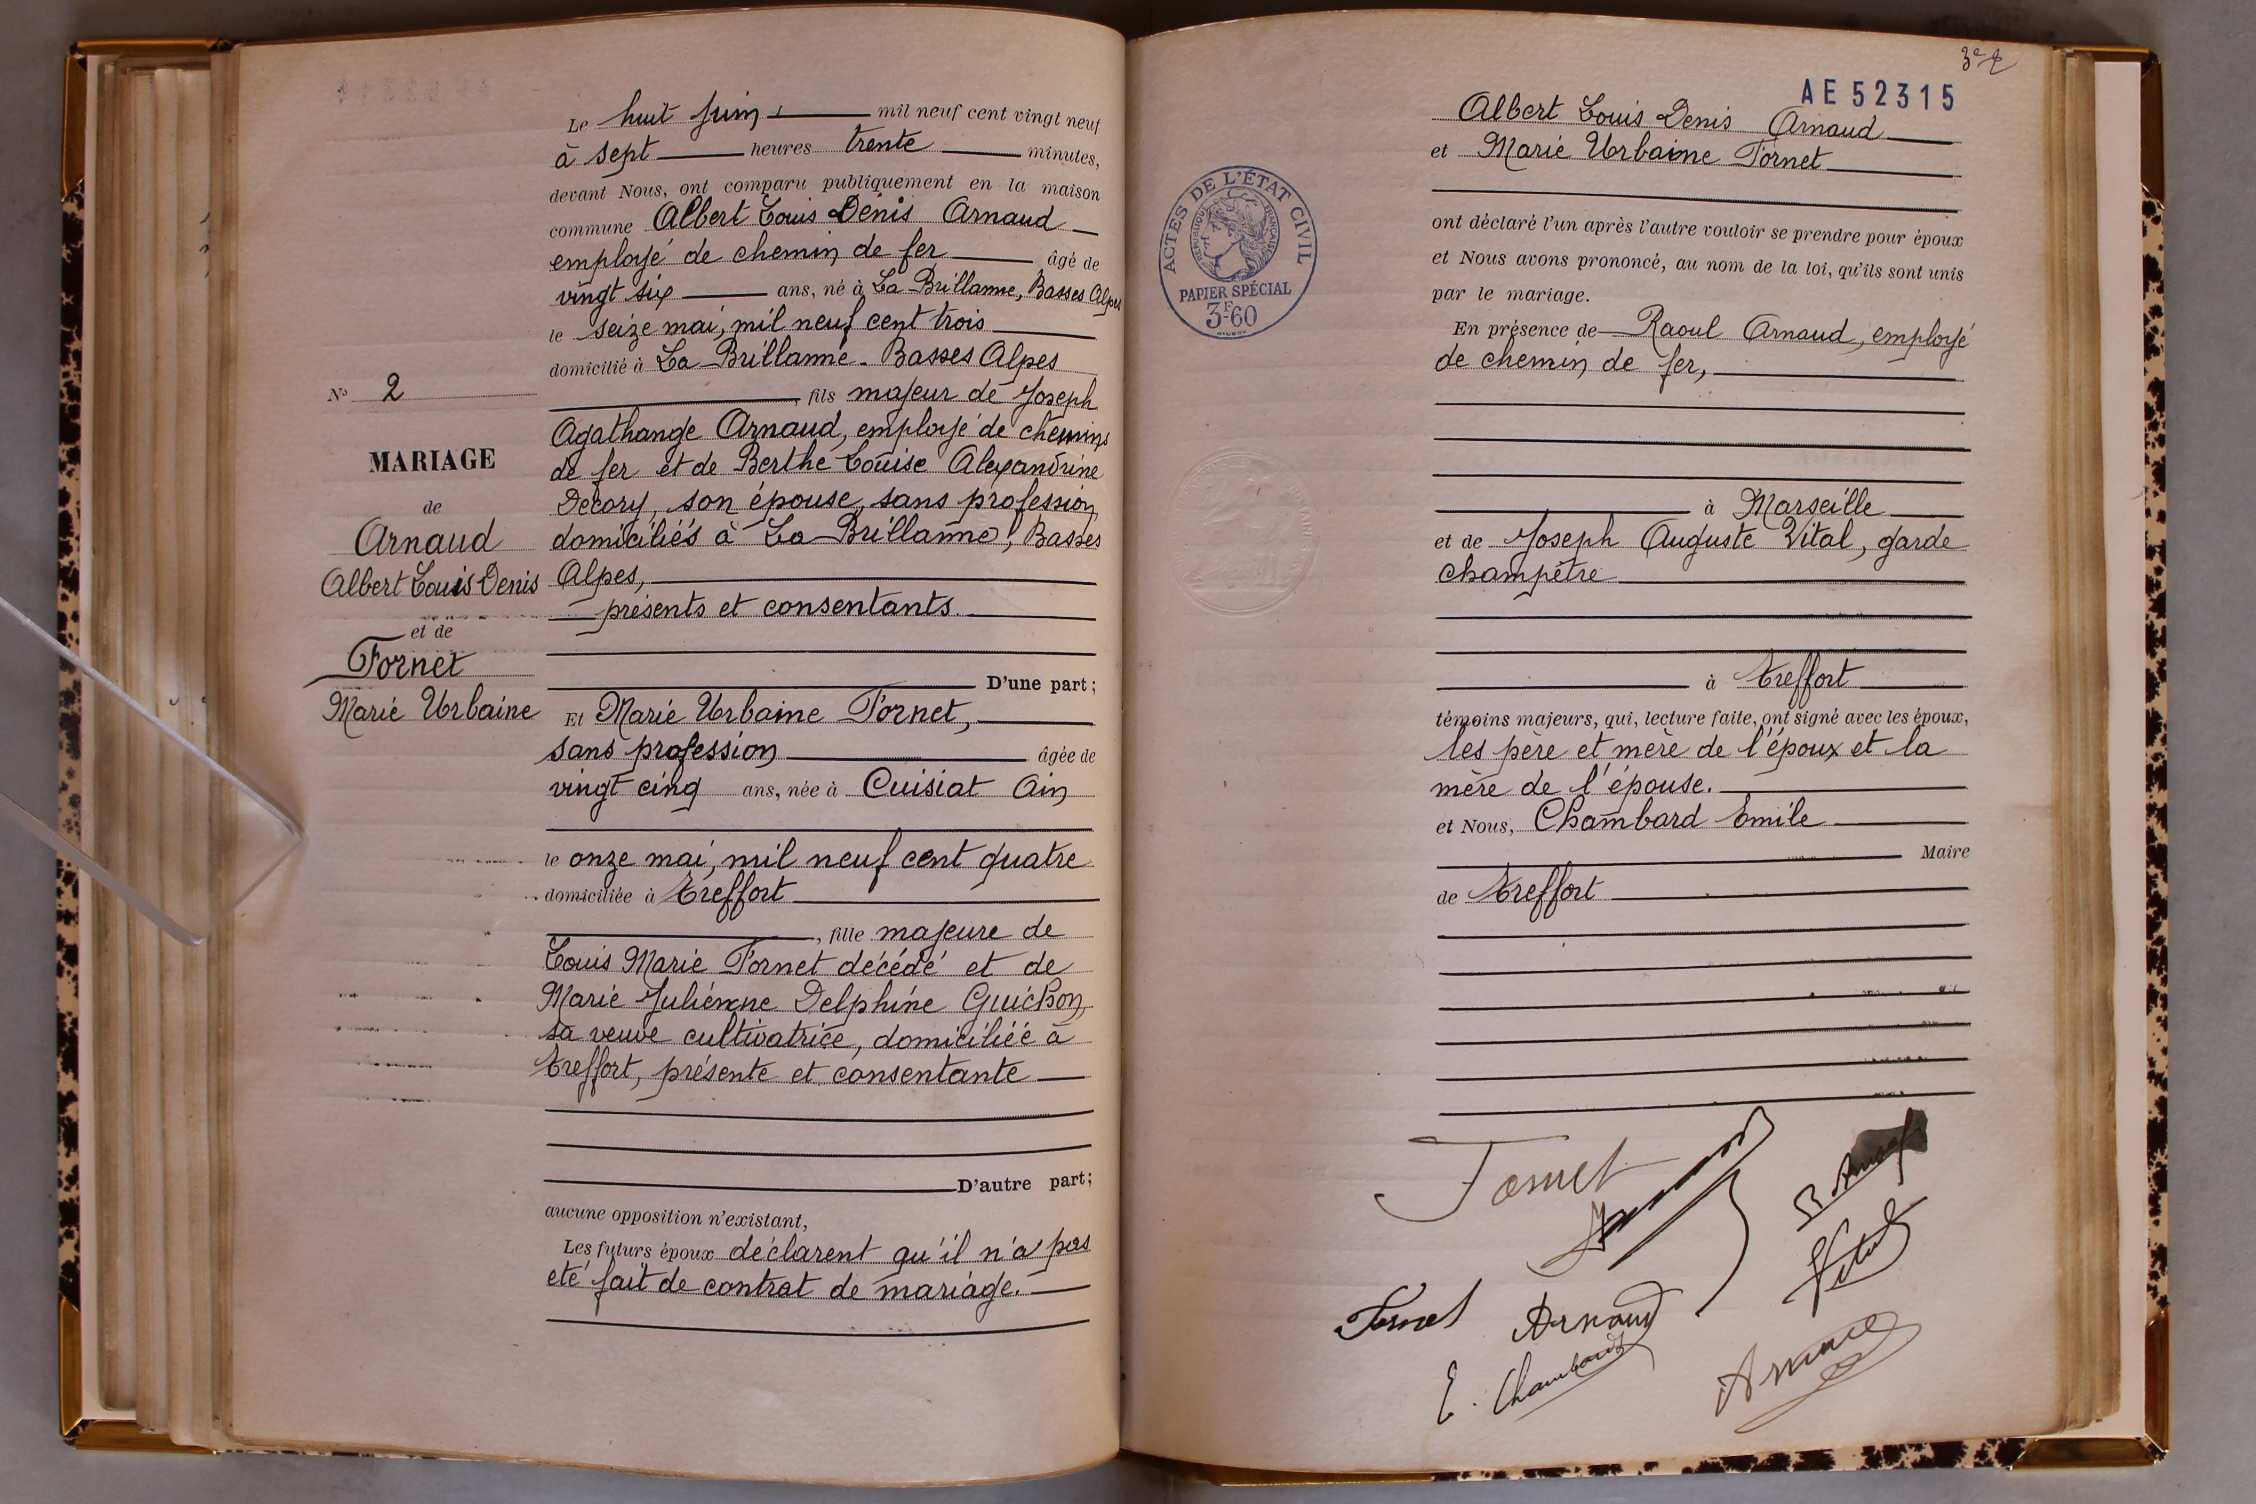 Le huit juin mil neuf cent vingt neuf
à sept heures trente minutes,
devant Nous, ont comparu publiquement en la maison
commune Albert Louis Denis Arnaud
employé de chemin de fer âgé de
vingt six ans, né à La Brillanne, Basses Alpes
le seize mai, mil neuf cent trois
domicilié à La Brillanne - Basses Alpes
, fils majeur de Joseph
Agathange Arnaud, employé de chemins
de fer et de Berthe Louise Alexandrine
Decory, son épouse, sans profession
domiciliés à La Brillanne, Basses
Alpes,
présents et consentants
D'une part;
Et Marie Urbaine Fornet,
sans profession âgée de
vingt cinq ans, née à Cuisiat Ain
le onze mai, mil neuf cent quatre
domiciliée à Treffort
, fille majeure de
Louis Marie Fornet décédé et de
Marie Julienne Delphine Guichon
sa veuve cultivatrice, domiciliée à
Treffort, présente et consentante
D'autre part;
aucune opposition n'existant,
Les futurs époux déclarent qu'il n'a pas
été fait de contrat de mariage.
No 2
MARIAGE
de
Arnaud
Albert Louis Denis
et de
Fornet
Marie Urbaine
AE 52315
Albert Louis Denis Arnaud
et Marie Urbaine Fornet
ont déclaré l'un après l'autre vouloir se prendre pour époux
et Nous avons prononcé, au nom de la loi, qu'ils sont unis
par le mariage.
En présence de Raoul Arnaud, employé
de chemin de fer,
à Marseille
et de Joseph Auguste Vital, garde
champêtre
à Treffort
témoins majeurs, qui, lecture faite, ont signé avec les époux,
les père et mère de l'époux et la
mère de l'épouse.
et Nous, Chambard Emile
Maire
de Treffort
ACTES DE L'ÉTAT CIVIL
RÉPUBLIQUE FRANÇAISE
PAPIER SPÉCIAL
3F-60
Fornet
Vital
Fornet
Arnaud
E. Chambard
Arnaud